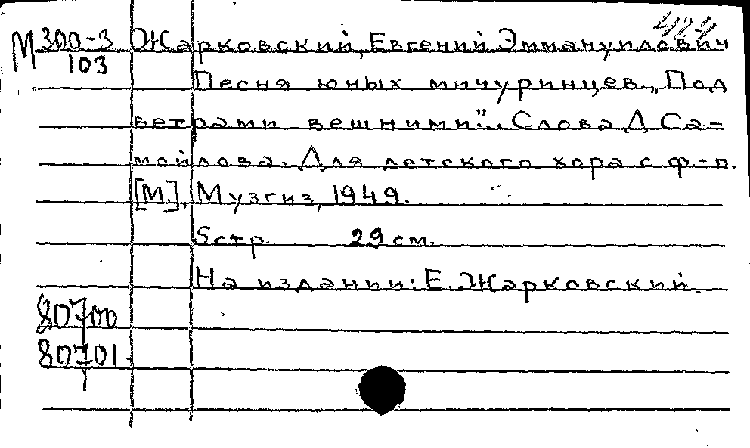 424
М 300-3 Жарковский, Евгений Эммануилович
103
Песня юных мичуринцев. „Под
ветрами вешними". Слова Д Са-
мойлова. Для детского хора с ф-п.
[М], Музгиз, 1949.
5 стр. 29 см.
На издании: Е. Жарковский.
80700
80701